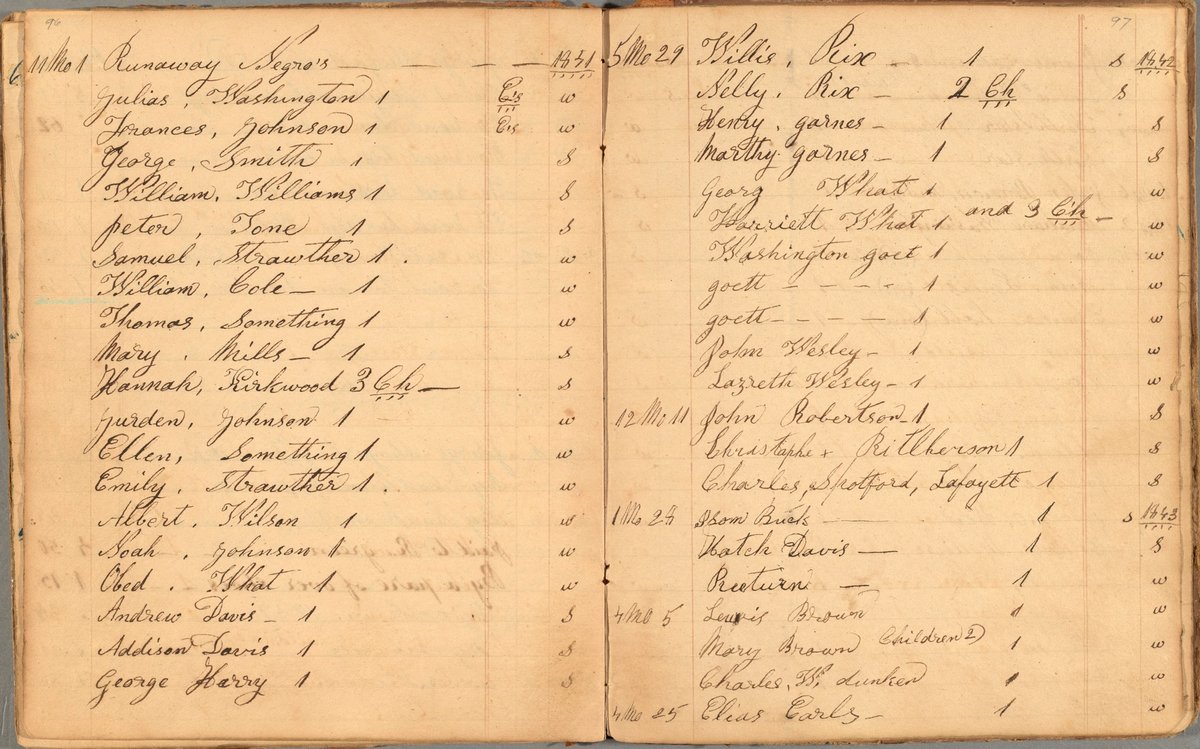 96
11 Mo 1 Runaway Negro's — — — — 1851
Julias, Washington 1 C's w
Frances, Johnson 1 C's w
George, Smith 1 s
William, Williams 1 s
Peter, Tone 1 s
Samuel, Strawther 1 . w
William, Cole — 1 w
Thomas, Something 1 w
Mary, Mills — 1 s
Hannah, Kirkwood 3 Ch — s
Jurden, Johnson 1 w
Ellen, Something 1 w
Emily, Strawther 1 . w
Albert, Wilson 1 w
Noah, Johnson 1 w
Obed. What 1 w
Andrew Davis — 1 s
Addison Davis 1 s
George Harry 1 s
97
5 Mo 29 Willis, Rix — 1 s 1842
Nelly, Rix — 2 Ch s
Henry, garnes — 1 s
Marthy garnes — 1 s
Georg What 1 w
Harriett What 1 and 3 Ch — w
Washington goet 1 w
goett — — — — 1 w
goett — — — 1 w
John Wesley — 1 w
Lazreth Wesley — 1 w
12 Mo 11 John Robertson — 1 s
Christophe + 1 s
Charles, Spotford, Lafayett 1 s
1 Mo 24 Buck — 1 s 1843
Hatch Davis — 1 s
Reeturn — 1 w
4 Mo 5 Lewis Brown 1 w
Mary Brown Children 2) 1 w
Charles, W. dunken 1 w
4 Mo 25 Elias Earls — 1 w